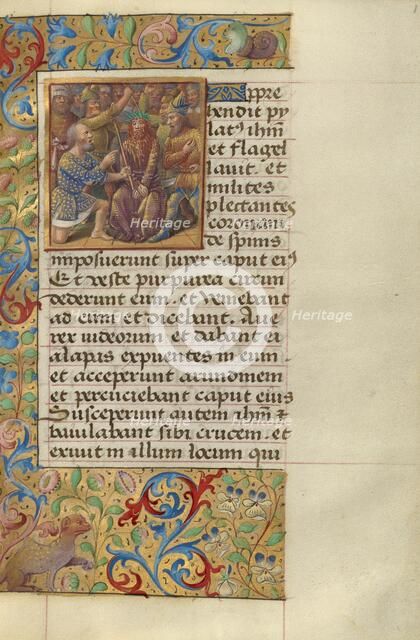 Appre
hendit py
lat9 ihm
et flagel
lauit. et
milites
plectantes
coronam
de spinis
imposuerunt super caput ei9
Et veste purpurea circum
dederunt eum. et veniebant
ad eum et dicebant. Aue
rex iudeorum et dabant ei
alapas expuentes in eum.
et acceperunt arundinem
et percuciebant caput eius
Susceperunt autem ihm z
baiulabant sibi crucem. et
exiuit in illum locum qui
Heritage
Heritage
Heritage
Heritage
Heritage